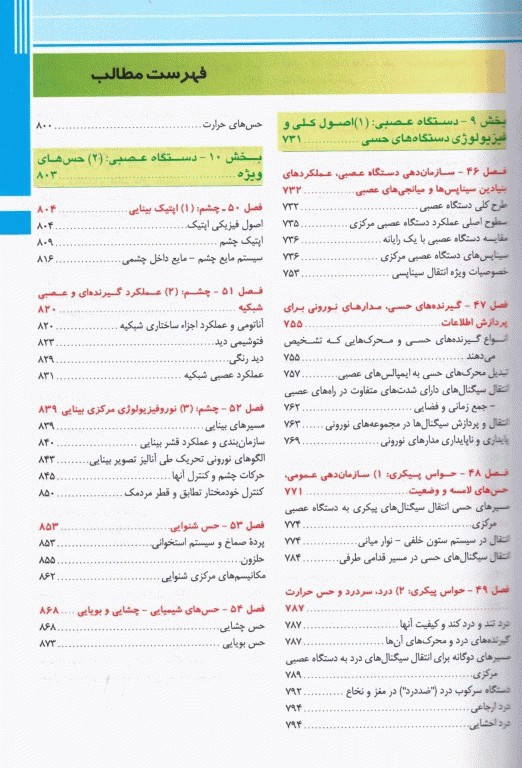 فهرست مطالب
بخش ۹ - دستگاه عصبی: (۱)اصول کلی و
فیزیولوژی دستگاه‌های حسی ............ ۷۳۱
فصل ۴۶ - سازمان‌دهی دستگاه عصبی، عملکردهای
بنیادین سیناپس‌ها و میانجی‌های عصبی ............ ۷۳۲
طرح کلی دستگاه عصبی ............ ۷۳۲
سطوح اصلی عملکرد دستگاه عصبی مرکزی ............ ۷۳۵
مقایسه دستگاه عصبی با یک رایانه ............ ۷۳۶
سیناپس‌های دستگاه عصبی مرکزی ............ ۷۳۶
خصوصیات ویژه انتقال سیناپسی ............ ۷۵۳
فصل ۴۷ - گیرنده‌های حسی، مدارهای نورونی برای
پردازش اطلاعات ............ ۷۵۵
انواع گیرنده‌های حسی و محرک‌هایی که تشخیص
می‌دهند ............ ۷۵۵
تبدیل محرک‌های حسی به ایمپالس‌های عصبی ............ ۷۵۷
انتقال سیگنال‌های دارای شدت‌های متفاوت در راه‌های عصبی
- جمع زمانی و فضایی ............ ۷۶۲
انتقال و پردازش سیگنال‌ها در مجموعه‌های نورونی ............ ۷۶۳
پایداری و ناپایداری مدارهای نورونی ............ ۷۶۹
فصل ۴۸ - حواس پیکری: ۱) سازمان‌دهی عمومی،
حس‌های لامسه و وضعیت ............ ۷۷۱
مسیرهای حسی انتقال سیگنال‌های پیکری به دستگاه عصبی
مرکزی ............ ۷۷۴
انتقال در سیستم ستون خلفی - نوار میانی ............ ۷۷۴
انتقال سیگنال‌های حسی در مسیر قدامی طرفی ............ ۷۸۴
فصل ۴۹ - حواس پیکری: ۲) درد، سردرد و حس حرارت
............ ۷۸۷
درد تند و درد کند و کیفیت آنها ............ ۷۸۷
گیرنده‌های درد و محرک‌های آن‌ها ............ ۷۸۷
مسیرهای دوگانه برای انتقال سیگنال‌های درد به دستگاه عصبی
مرکزی ............ ۷۸۹
دستگاه سرکوب درد ("ضددرد") در مغز و نخاع ............ ۷۹۲
درد ارجاعی ............ ۷۹۴
درد احشایی ............ ۷۹۴
حس‌های حرارت ............ ۸۰۰
بخش ۱۰ - دستگاه عصبی: (۲) حس‌های
ویژه ............ ۸۰۳
فصل ۵۰ - چشم: (۱) اپتیک بینایی ............ ۸۰۴
اصول فیزیکی اپتیک ............ ۸۰۴
اپتیک چشم ............ ۸۰۹
سیستم مایع چشم - مایع داخل چشمی ............ ۸۱۶
فصل ۵۱ - چشم: (۲) عملکرد گیرنده‌ای و عصبی
شبکیه ............ ۸۲۰
آناتومی و عملکرد اجزاء ساختاری شبکیه ............ ۸۲۰
فتوشیمی دید ............ ۸۲۳
دید رنگی ............ ۸۲۹
عملکرد عصبی شبکیه ............ ۸۳۱
فصل ۵۲ - چشم: (۳) نوروفیزیولوژی مرکزی بینایی ۸۳۹
مسیرهای بینایی ............ ۸۳۹
سازمان‌بندی و عملکرد قشر بینایی ............ ۸۴۰
الگوهای نورونی تحریک طی آنالیز تصویر بینایی ............ ۸۴۳
حرکات چشم و کنترل آنها ............ ۸۴۵
کنترل خودمختار تطابق و قطر مردمک ............ ۸۵۰
فصل ۵۳ - حس شنوایی ............ ۸۵۳
پردهٔ صماخ و سیستم استخوانی ............ ۸۵۳
حلزون ............ ۸۵۵
مکانیسم‌های مرکزی شنوایی ............ ۸۶۲
فصل ۵۴ - حس‌های شیمیایی - چشایی و بویایی ...... ۸۶۸
حس چشایی ............ ۸۶۸
حس بویایی ............ ۸۷۳